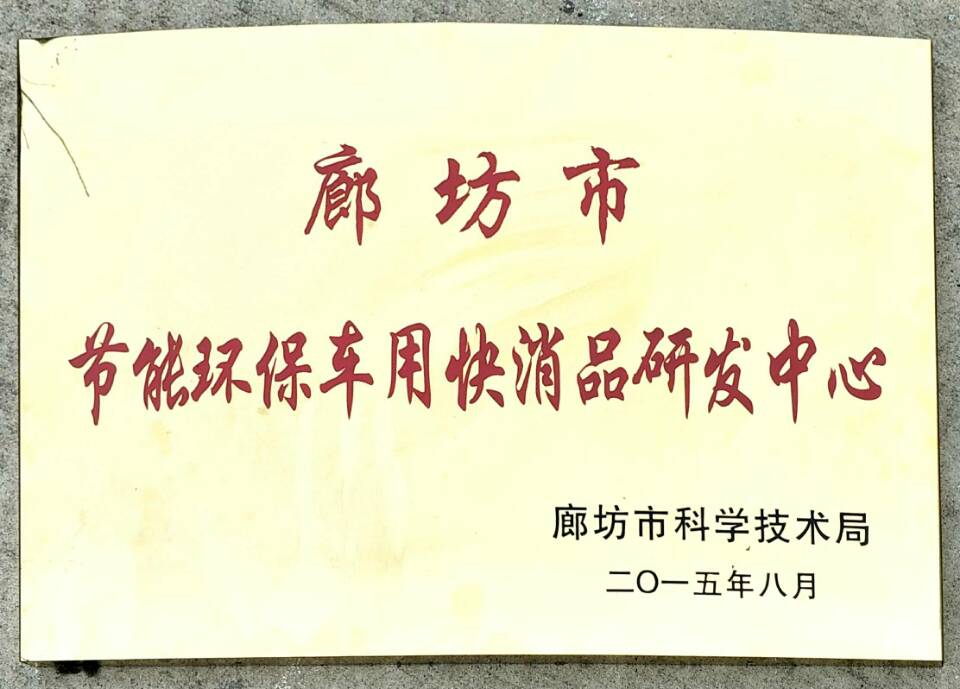 廊坊市
节能环保车用快消品研发中心
廊坊市科学技术局
二〇一五年八月